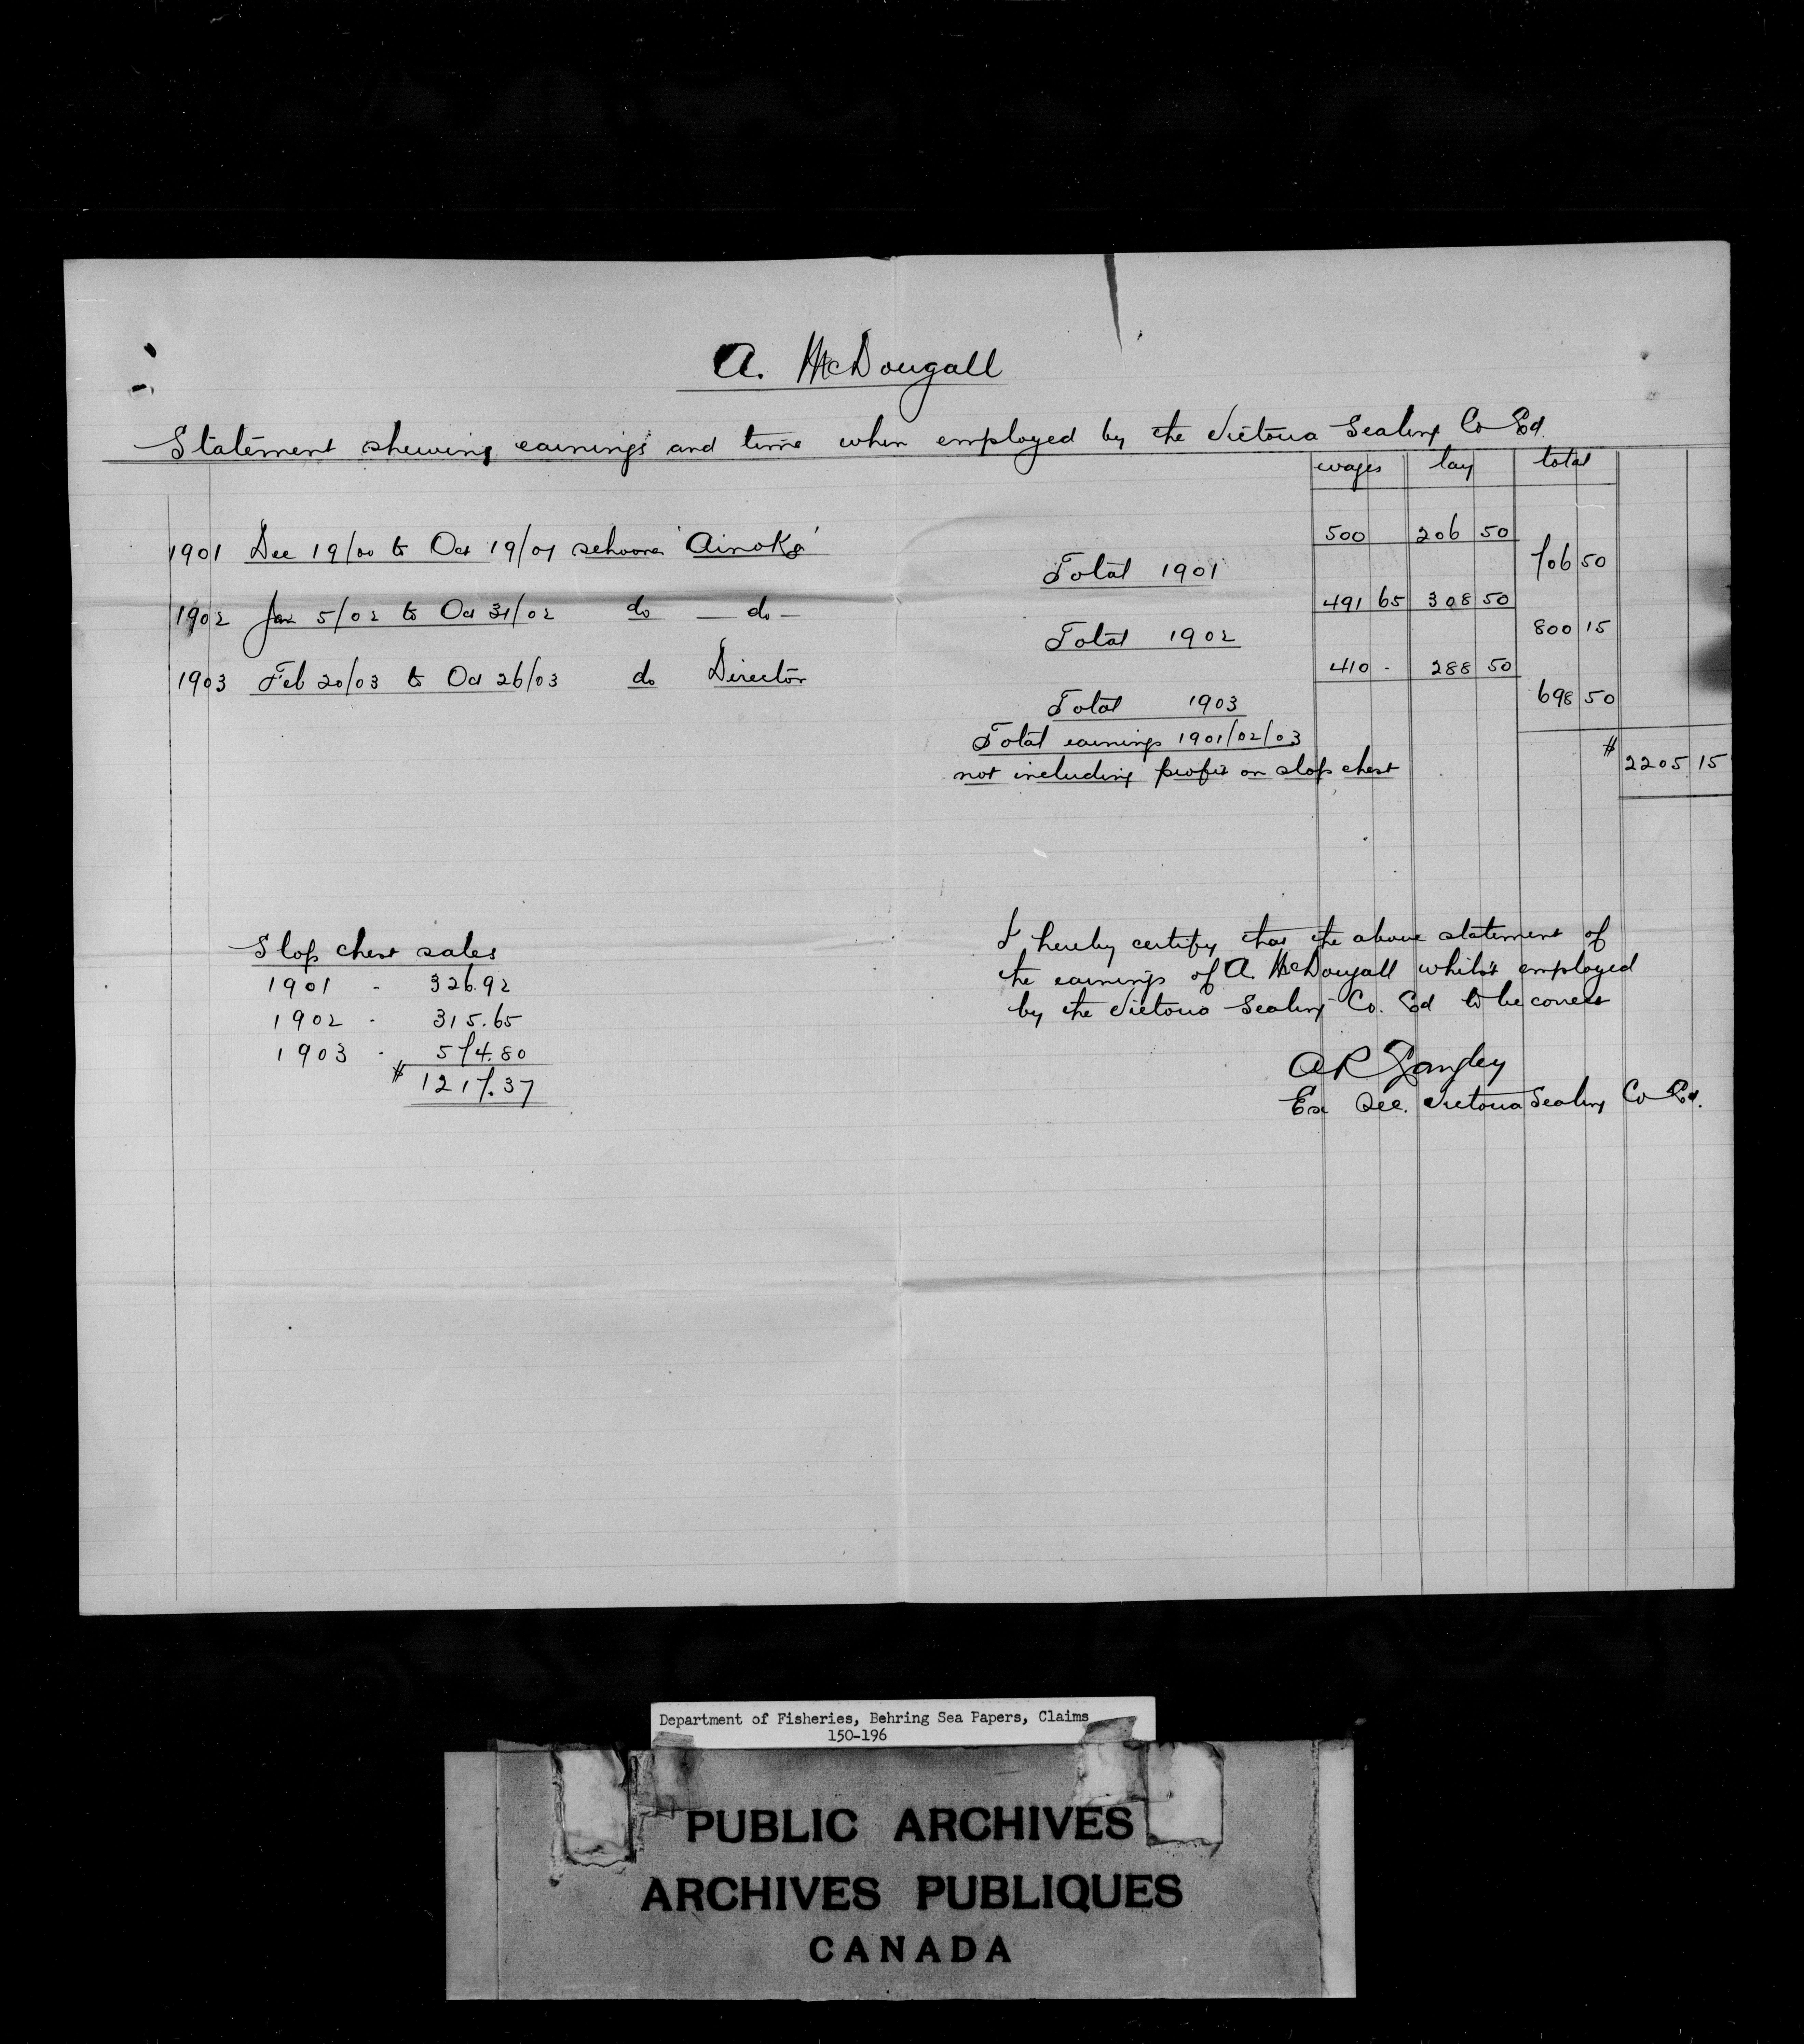 A. McDougall
Statement shewing earnings and time when employed by the Victoria Sealing Co Ld.
wages lay total
1901 Dec 19/00 to Oct 19/01 schooner 'Ainoko' 500 206 50
Total 1901 706 50
1902 Jan 5/02 to Oct 31/02 do — do — 491 65 308 50
Total 1902 800 15
1903 Feb 20/03 to Oct 26/03 do Director 410 - 288 50
Total 1903 698 50
Total earnings 1901/02/03
not including profit on slop chest $ 2205 15
Slop chest sales
1901 - 326.92
1902 - 315.65
1903 - 574.80
$ 1217.37
I hereby certify that the above statement of
the earnings of A. McDougall whilst employed
by the Victoria Sealing Co. Ld to be correct
A R Langley
Ex Sec. Victoria Sealing Co Ld.
Department of Fisheries, Behring Sea Papers, Claims
150-196
PUBLIC ARCHIVES
ARCHIVES PUBLIQUES
CANADA